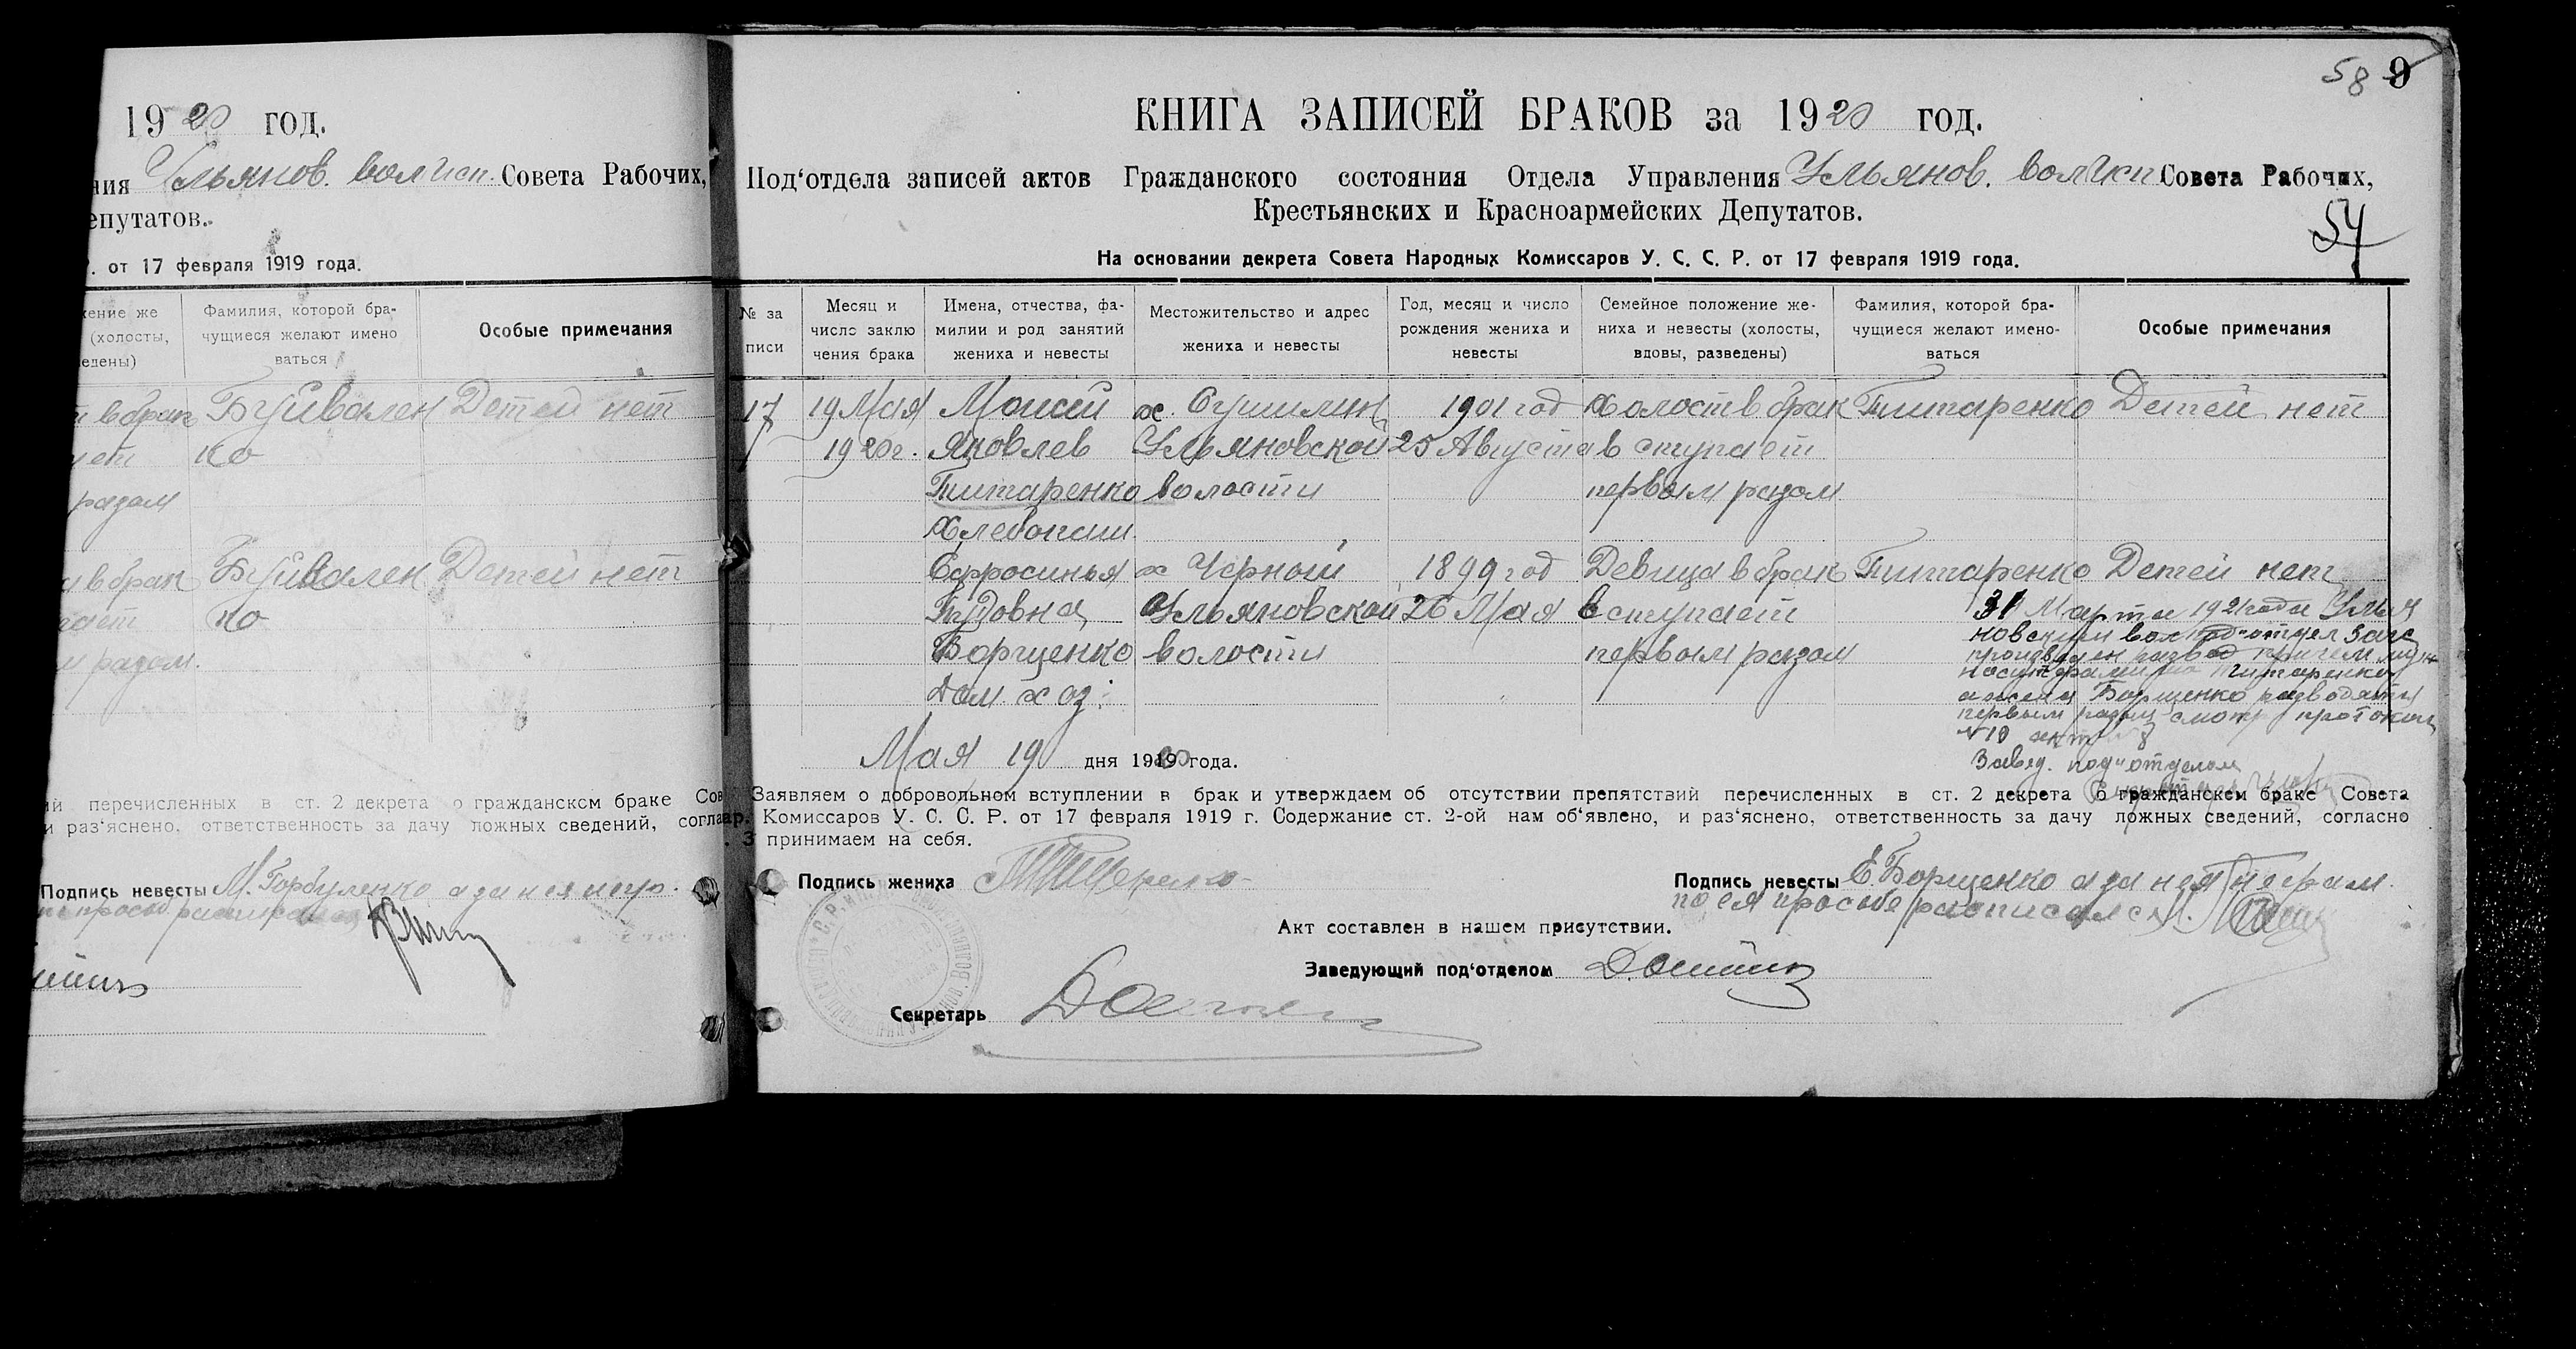 1920 год.
ния Ульянов. волисп. Совета Рабочих,
епутатов.
от 17 февраля 1919 года.
жение же
(холосты,
едены)
Фамилия, которой бра-
чущиеся желают имено
ваться
Особые примечания
в брак Буйвален Детей нет
ко
разом
в брак Буйвален Детей нет
ко
разом.
ий перечисленных в ст. 2 декрета о гражданском браке Сов
и раз'яснено, ответственность за дачу ложных сведений, согла
Подпись невесты М. Горбуленко а за нея негр.
58 9
КНИГА ЗАПИСЕЙ БРАКОВ за 1920 год.
Под'отдела записей актов Гражданского состояния Отдела Управления Ульянов. волисп. Совета Рабочих,
Крестьянских и Красноармейских Депутатов.
54
На основании декрета Совета Народных Комиссаров У. С. С. Р. от 17 февраля 1919 года.
№ за
писи
Месяц и
число заклю
чения брака
Имена, отчества, фа-
милии и род занятий
жениха и невесты
Местожительство и адрес
жениха и невесты
Год, месяц и число
рождения жениха и
невесты
Семейное положение же-
ниха и невесты (холосты,
вдовы, разведены)
Фамилия, которой бра-
чущиеся желают имено-
ваться
Особые примечания
17 19 Мая Моисей х. Сушилин 1901 год Холост в брак Титаренко Детей нет
1920 г. Яковлев Ульяновской 25 Августа вступает
Титаренко волости первым разом
Хлебопаш.
Ефросинья х Черный 1899 год Девица в брак Титаренко Детей нет
Тудовна Ульяновской 26 Мая вступает
Борщенко волости первым разом
Дом. хоз.
31 Марта 1921 года Улья
новским вол под"отдел Загс
произведен развод причем муж
носит фамилию Титаренко
а жена Борщенко разводятся
первым разом смотр протокол
№ 10 акт 8
Завед. под"отделом
Мая 19 дня 1920 года.
Заявляем о добровольном вступлении в брак и утверждаем об отсутствии препятствий перечисленных в ст. 2 декрета о гражданскем браке Совета
ар. Комиссаров У. С. С. Р. от 17 февраля 1919 г. Содержание ст. 2-ой нам об'явлено, и раз'яснено, ответственность за дачу ложных сведений, согласно
. 3 принимаем на себя.
Подпись жениха
Подпись невесты Е. Борщенко а за нея неграм.
по ея просьбе расписался
Акт составлен в нашем присутствии.
Заведующий под'отделом
Секретарь